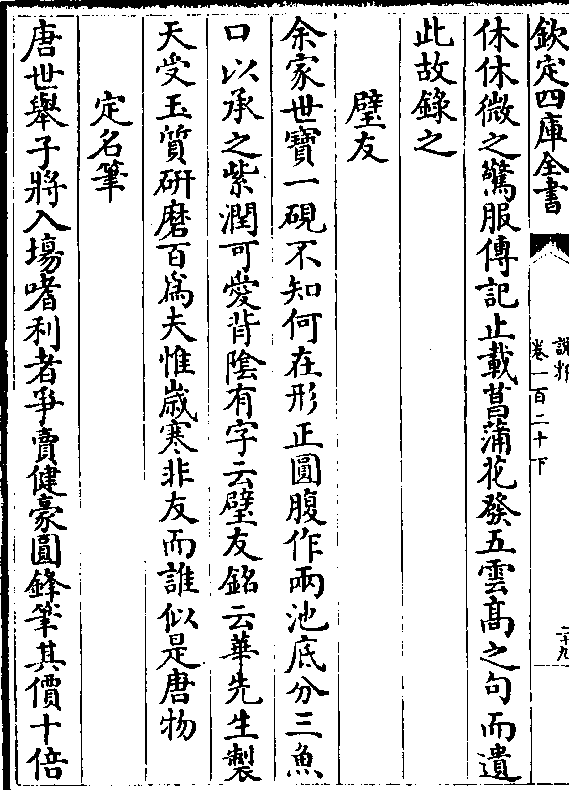 欽定四庫全書
說郛
卷一百二十下
二十九
休休微之驚服傳記止載菖蒲花發五雲高之句而遺
此故錄之
璧友
余家世寶一硯不知何在形正圓腹作兩池底分三魚
口以承之紫潤可愛背陰有字云璧友銘云華先生製
天受玉質研磨百為夫惟歲寒非友而誰似是唐物
定名筆
唐世舉子將入場嗜利者爭賣健豪圓鋒筆其價十倍